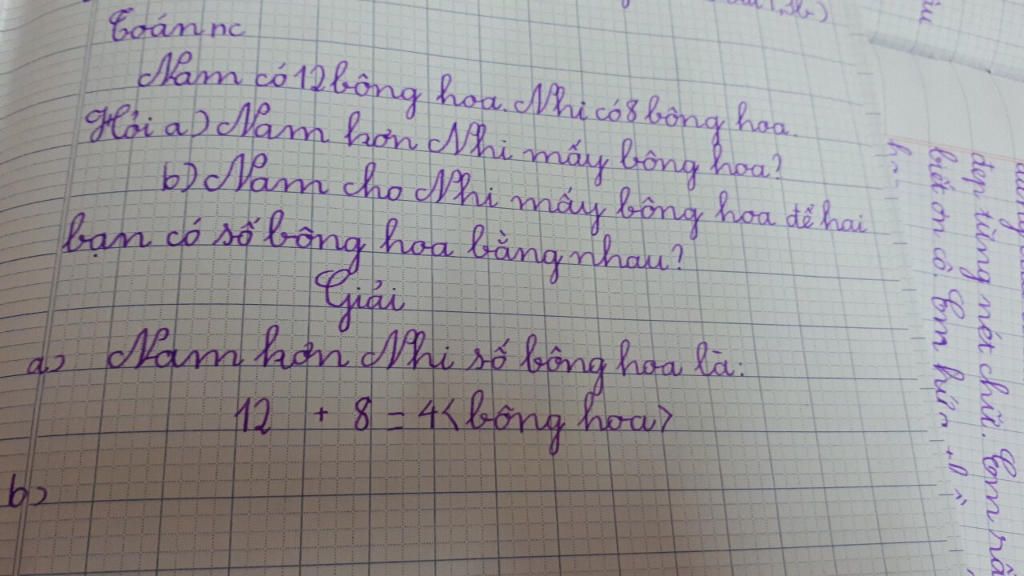 Toán nc
Nam có 12 bông hoa. Nhi có 8 bông hoa.
Hỏi a) Nam hơn Nhi mấy bông hoa?
b) Nam cho Nhi mấy bông hoa để hai
bạn có số bông hoa bằng nhau?
Giải
a) Nam hơn Nhi số bông hoa là:
12 + 8 = 4 <bông hoa>
b)
đẹp từng nét chữ. Em rấ
biết ơn cô. Em hứa